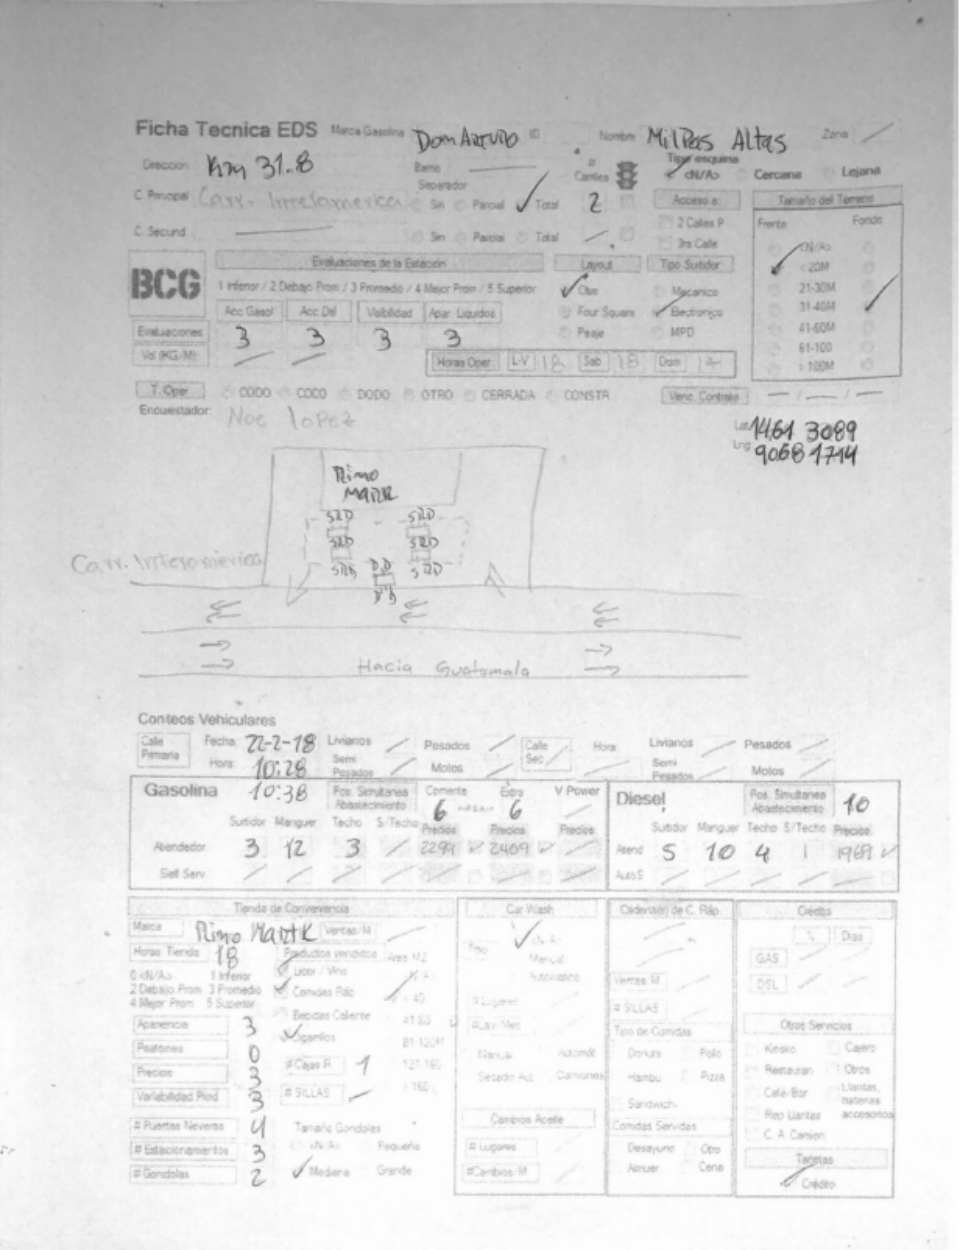 Ficha Tecnica EDS Marca Gasolina Don Arturo ID Nombre Milpas Altas Zona /
Direccion Km 31.8 Barrio — # Carriles Tipo esquina <N/A> Cercana Lejana
Separador
C. Principal Carr. Interamerica Sin Parcial Total 2 Acceso a: Tamaño del Terreno
C. Secund — Sin Parcial Total / 2 Calles P Frente Fondo
3ra Calle <N/A>
BCG Evaluaciones de la Estación Layout Tipo Surtidor < 20M
1 Inferior / 2 Debajo Prom / 3 Promedio / 4 Mejor Prom / 5 Superior Otro Mecanico 21-30M
Acc Gasol Acc Dsl Visibilidad Apar. Liquidos Four Square Electronico 31-40M
Evaluaciones 3 3 3 3 Peaje MPD 41-60M
Vol (KG/M): / / Horas Oper L-V 18 Sab 18 Dom 61-100
> 100M
T. Oper CODO COCO DODO OTRO CERRADA CONSTR Venc. Contrato — / — / —
Encuestador: Noe lopez
Lat 1461 3089
Lng 9068 1714
Rimo
SRD SRD
SRD SRD
Carr. Interomerica SRD D.D SRD
Hacia Guatamala
Conteos Vehiculares
Calle Primaria Fecha: 22-2-18 Livianos / Pesados / Calle Sec Hora: Livianos / Pesados /
Hora: 10:28 Semi Pesados / Motos / Semi Pesados / Motos /
Gasolina 10:38 Pos. Simultanea Abastecimiento Corriente 6 Extra 6 V Power / Diesel Pos. Simultanea Abastecimiento 10
Surtidor Manguer Techo S/Techo Precios Precios Precios Surtidor Manguer Techo S/Techo Precios
Atendedor 3 12 3 / 2299 2409 / Atend 5 10 4 1 1969
Self Serv. / / / / / / / Auto S / / / / /
Tienda de Conveniencia Car Wash Cadena(s) de C. Ráp. Credito
Marca Rimo Ventas/M / Tipo <N/A> % Dias
Horas Tienda 18 Productos vendidos Area M2 Manual GAS / /
0 <N/A> 1 Inferior Licor / Vino N/A Automatico Ventas M DSL / /
2 Debajo Prom 3 Promedio Comidas Ráp < 40 # Lugares # SILLAS
4 Mejor Prom 5 Superior Bebidas Caliente 41-80 Tipo de Comidas Otros Servicios
Apariencia 3 Cigarrillos 81-120M Donuts Pollo Kiosko Cajero
Peatones 0 # Cajas R 1 121-160 Manual Automát Hambu Pizza Restauran Otros
Precios 3 # SILLAS / > 160 Secado Aut. Camiones Sandwich Café/Bar Llantas, baterias accesorios
Variabilidad Prod 3 Rep Llantas
# Puertas Neveras 4 Tamaño Gondolas Cambios Aceite Comidas Servidas C. A Camion
# Estacionamientos 3 <N/A> Pequeña # Lugares Desayuno Otro Tarjetas
# Gondolas 2 Mediana Grande #Cambios/M Almuer Cena Crédito